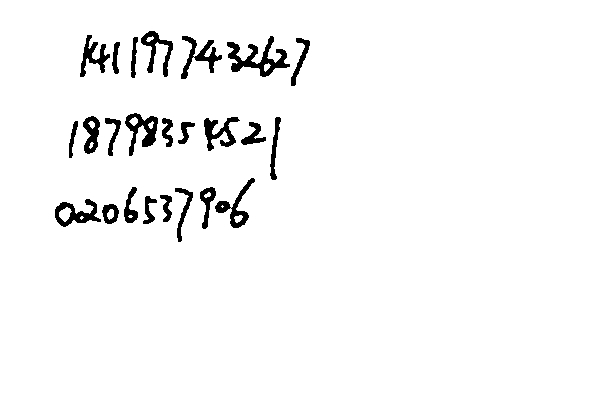 1411977432627
18798354521
00206537906